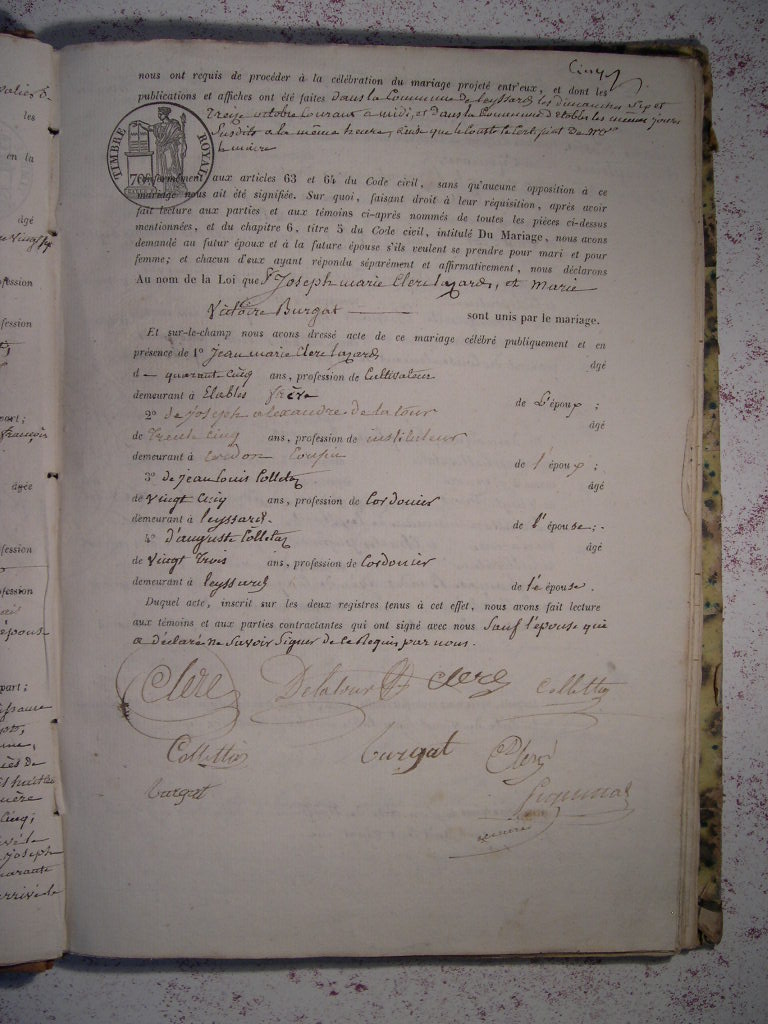 Cinq
nous ont requis de procéder à la célébration du mariage projeté entr'eux, et dont les
publications et affiches ont été faites dans la Commune de leyssard les dimanches Sept et
treize octobre Courant a midi, et dans la Commune d'étables les mêmes jours
Susdits a la même heure, ainsi que le Constate le Certificat de Mr
le maire
TIMBRE ROYAL
70
conformément aux articles 63 et 64 du Code civil, sans qu'aucune opposition à ce
mariage nous ait été signifiée. Sur quoi, faisant droit à leur réquisition, après avoir
fait lecture aux parties et aux témoins ci-après nommés de toutes les pièces ci-dessus
mentionnées, et du chapitre 6, titre 5 du Code civil, intitulé Du Mariage, nous avons
demandé au futur époux et à la future épouse s'ils veulent se prendre pour mari et pour
femme; et chacun d'eux ayant répondu séparément et affirmativement, nous déclarons
Au nom de la Loi que Joseph marie Clerc lazard, et marie
Victoire Burgat sont unis par le mariage.
Et sur-le-champ nous avons dressé acte de ce mariage célébré publiquement et en
présence de 1° Jean marie Clerc lazard
âgé
d quarant cinq ans, profession de Cultivateur
demeurant à Etables frère de L'époux ;
2° de joseph alexandre de latour
âgé
de trente cinq ans, profession de instituteur
demeurant à Cousin de l'époux ;
3° de jean louis Colletaz
âgé
de vingt cinq ans, profession de Cordonier
demeurant à leyssard. de l'épouse ;
4° d'auguste Colletaz
âgé
de vingt trois ans, profession de Cordonier
demeurant à leyssard de l'épouse.
Duquel acte, inscrit sur les deux registres tenus à cet effet, nous avons fait lecture
aux témoins et aux parties contractantes qui ont signé avec nous Sauf l'épouse qui
a déclaré ne Savoir Signer de Ce Requis par nous.
Clerc Delatour Clerc Collettaz
Collettaz burgat Clerc
burgat